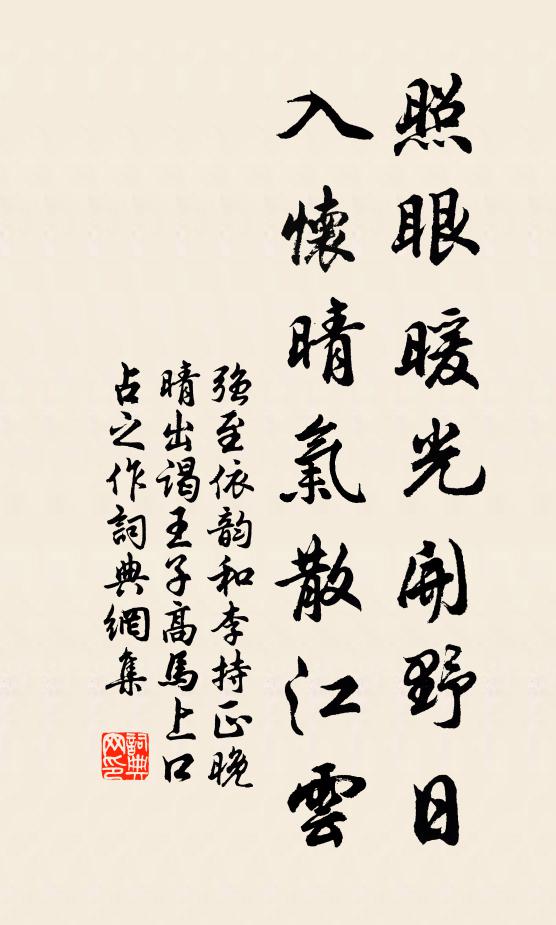 照眼暖光開野日
入懷晴氣散江雲
强至依韵和李持正晚
晴出谒王子高馬上口
占之作詞典網集
詞典
网印